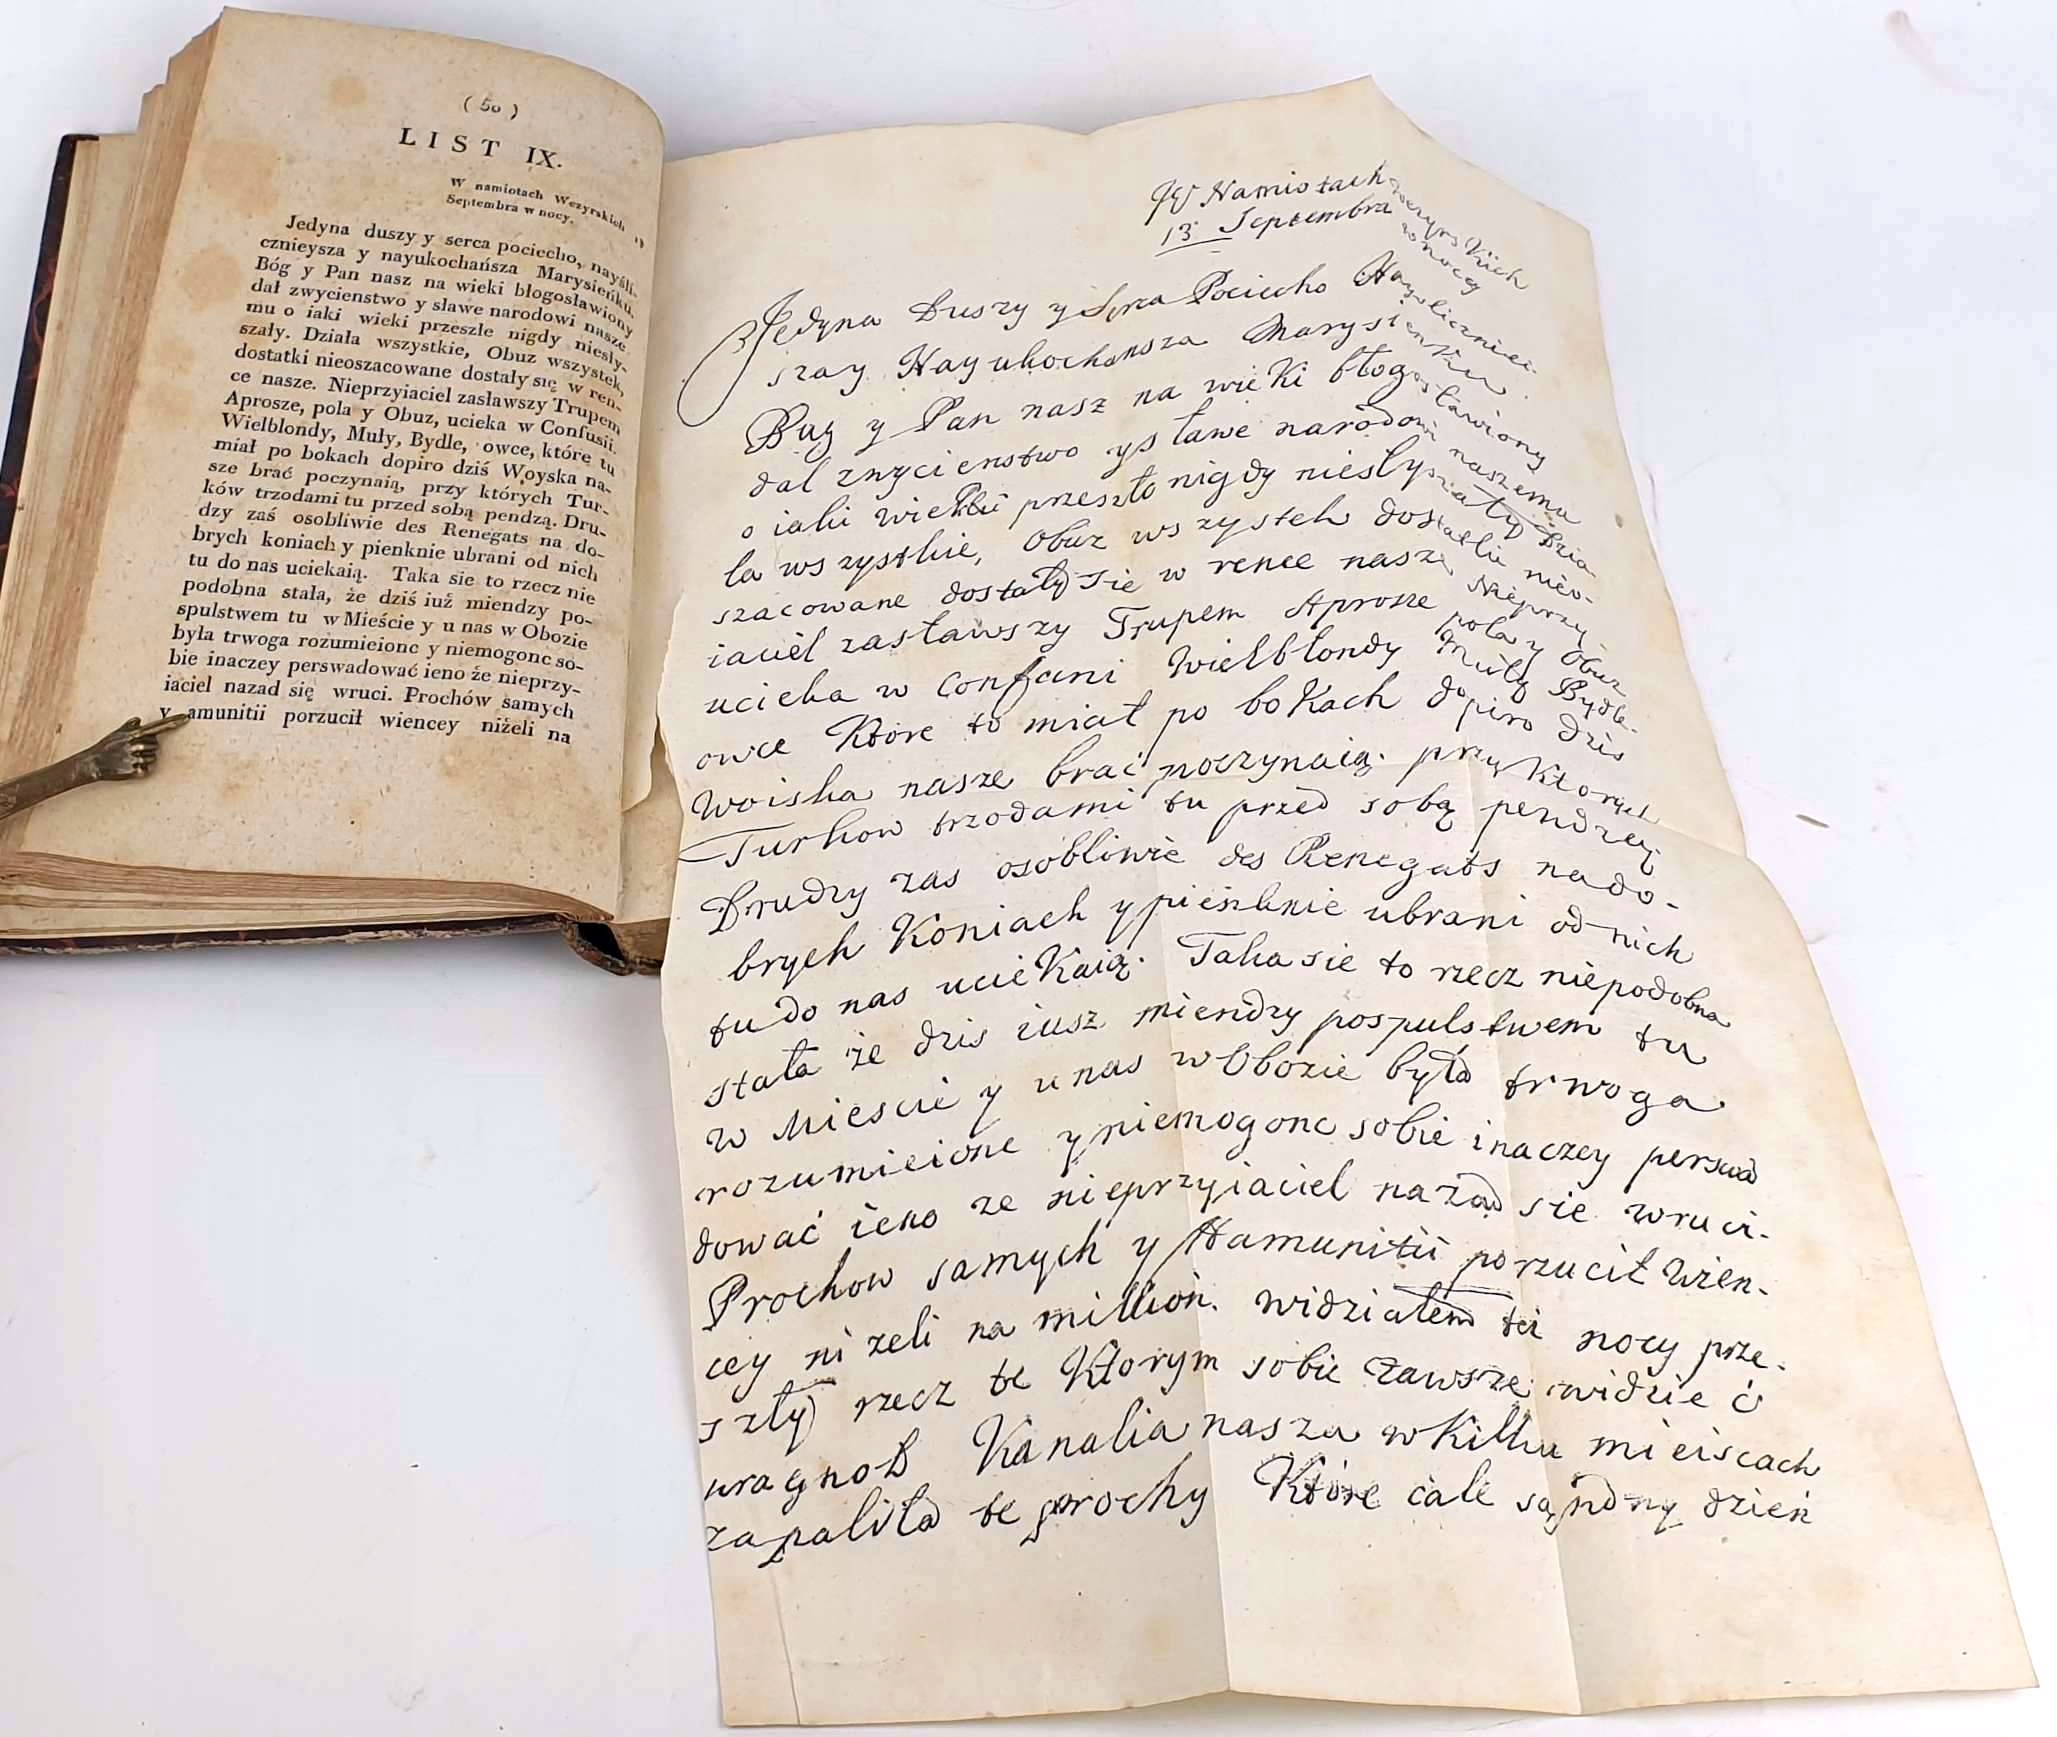 ( 50 )
LIST IX.
W namiotach Wezyrskich 13
Septembra w nocy.
Jedyna duszy y serca pociecho, nayśli-
cznieysza y nayukochańsza Marysieńku,
Bóg y Pan nasz na wieki błogosławiony
dał zwycienstwo y sławe narodowi nasze-
mu o iaki wieki przeszłe nigdy niesły-
szały. Działa wszystkie, Obuz wszystek,
dostatki nieoszacowane dostały się w ren-
ce nasze. Nieprzyiaciel zasławszy Trupem
Aprosze, pola y Obuz, ucieka w Confusii.
Wielblondy, Muły, Bydle, owce, które tu
miał po bokach dopiro dziś Woyska na-
sze brać poczynaią, przy których Tur-
ków trzodami tu przed sobą pendzą. Dru-
dzy zaś osobliwie des Renegats na do-
brych koniach y pienknie ubrani od nich
tu do nas uciekaią. Taka sie to rzecz nie
podobna stała, że dziś iuż miendzy po-
spulstwem tu w Mieście y u nas w Obozie
była trwoga rozumieionc y niemogonc so-
bie inaczey perswadować ieno że nieprzy-
iaciel nazad się wruci. Prochów samych
y amunitii porzucił wiencey niżeli na
W Namiotach Wezyrskich
13 Septembra w nocy
Jedyna Duszy y Serca Pociecho Naysliczniei-
szay Nayukochansza Marysienku
Bug y Pan nasz na wieki błogosławiony
dal zwycienstwo y sławe narodowi naszemu
o iaki wieki przeszło nigdy nieslyszały Dzia-
la wszystkie, Obuz wszystek dostatki nieo-
szacowane dostały sie w rence nasze Nieprzy-
iaciel zasławszy Trupem Aprosze pola y Obuz
ucieka w confusii Wielblondy Muły Bydle-
owce Które to miał po bokach dopiro dzis
Woiska nasze brać poczynaią. przy Ktorych
Turkow trzodami tu przed sobą pendzą
Drudzy zas osobliwie des Renegats na do-
brych Koniach y pienknie ubrani od nich
tu do nas uciekaią. Taka sie to rzecz niepodobna
stała że dzis iusz miendzy pospulstwem tu
w Miescie y u nas w Obozie była trwoga
rozumieionc y niemogonc sobie inaczey perswa
dować ieno ze nieprzyiaciel nazad sie wruci.
Prochow samych y Hamunitii porzucił wien-
cey nizeli na million. widziałem tei nocy prze-
szły rzecz te Ktorym sobie zawsze widzieć
pragnoł Kanalia nasza w Kilku mieiscach
zapaliła te prochy Które całe sąndny dzień